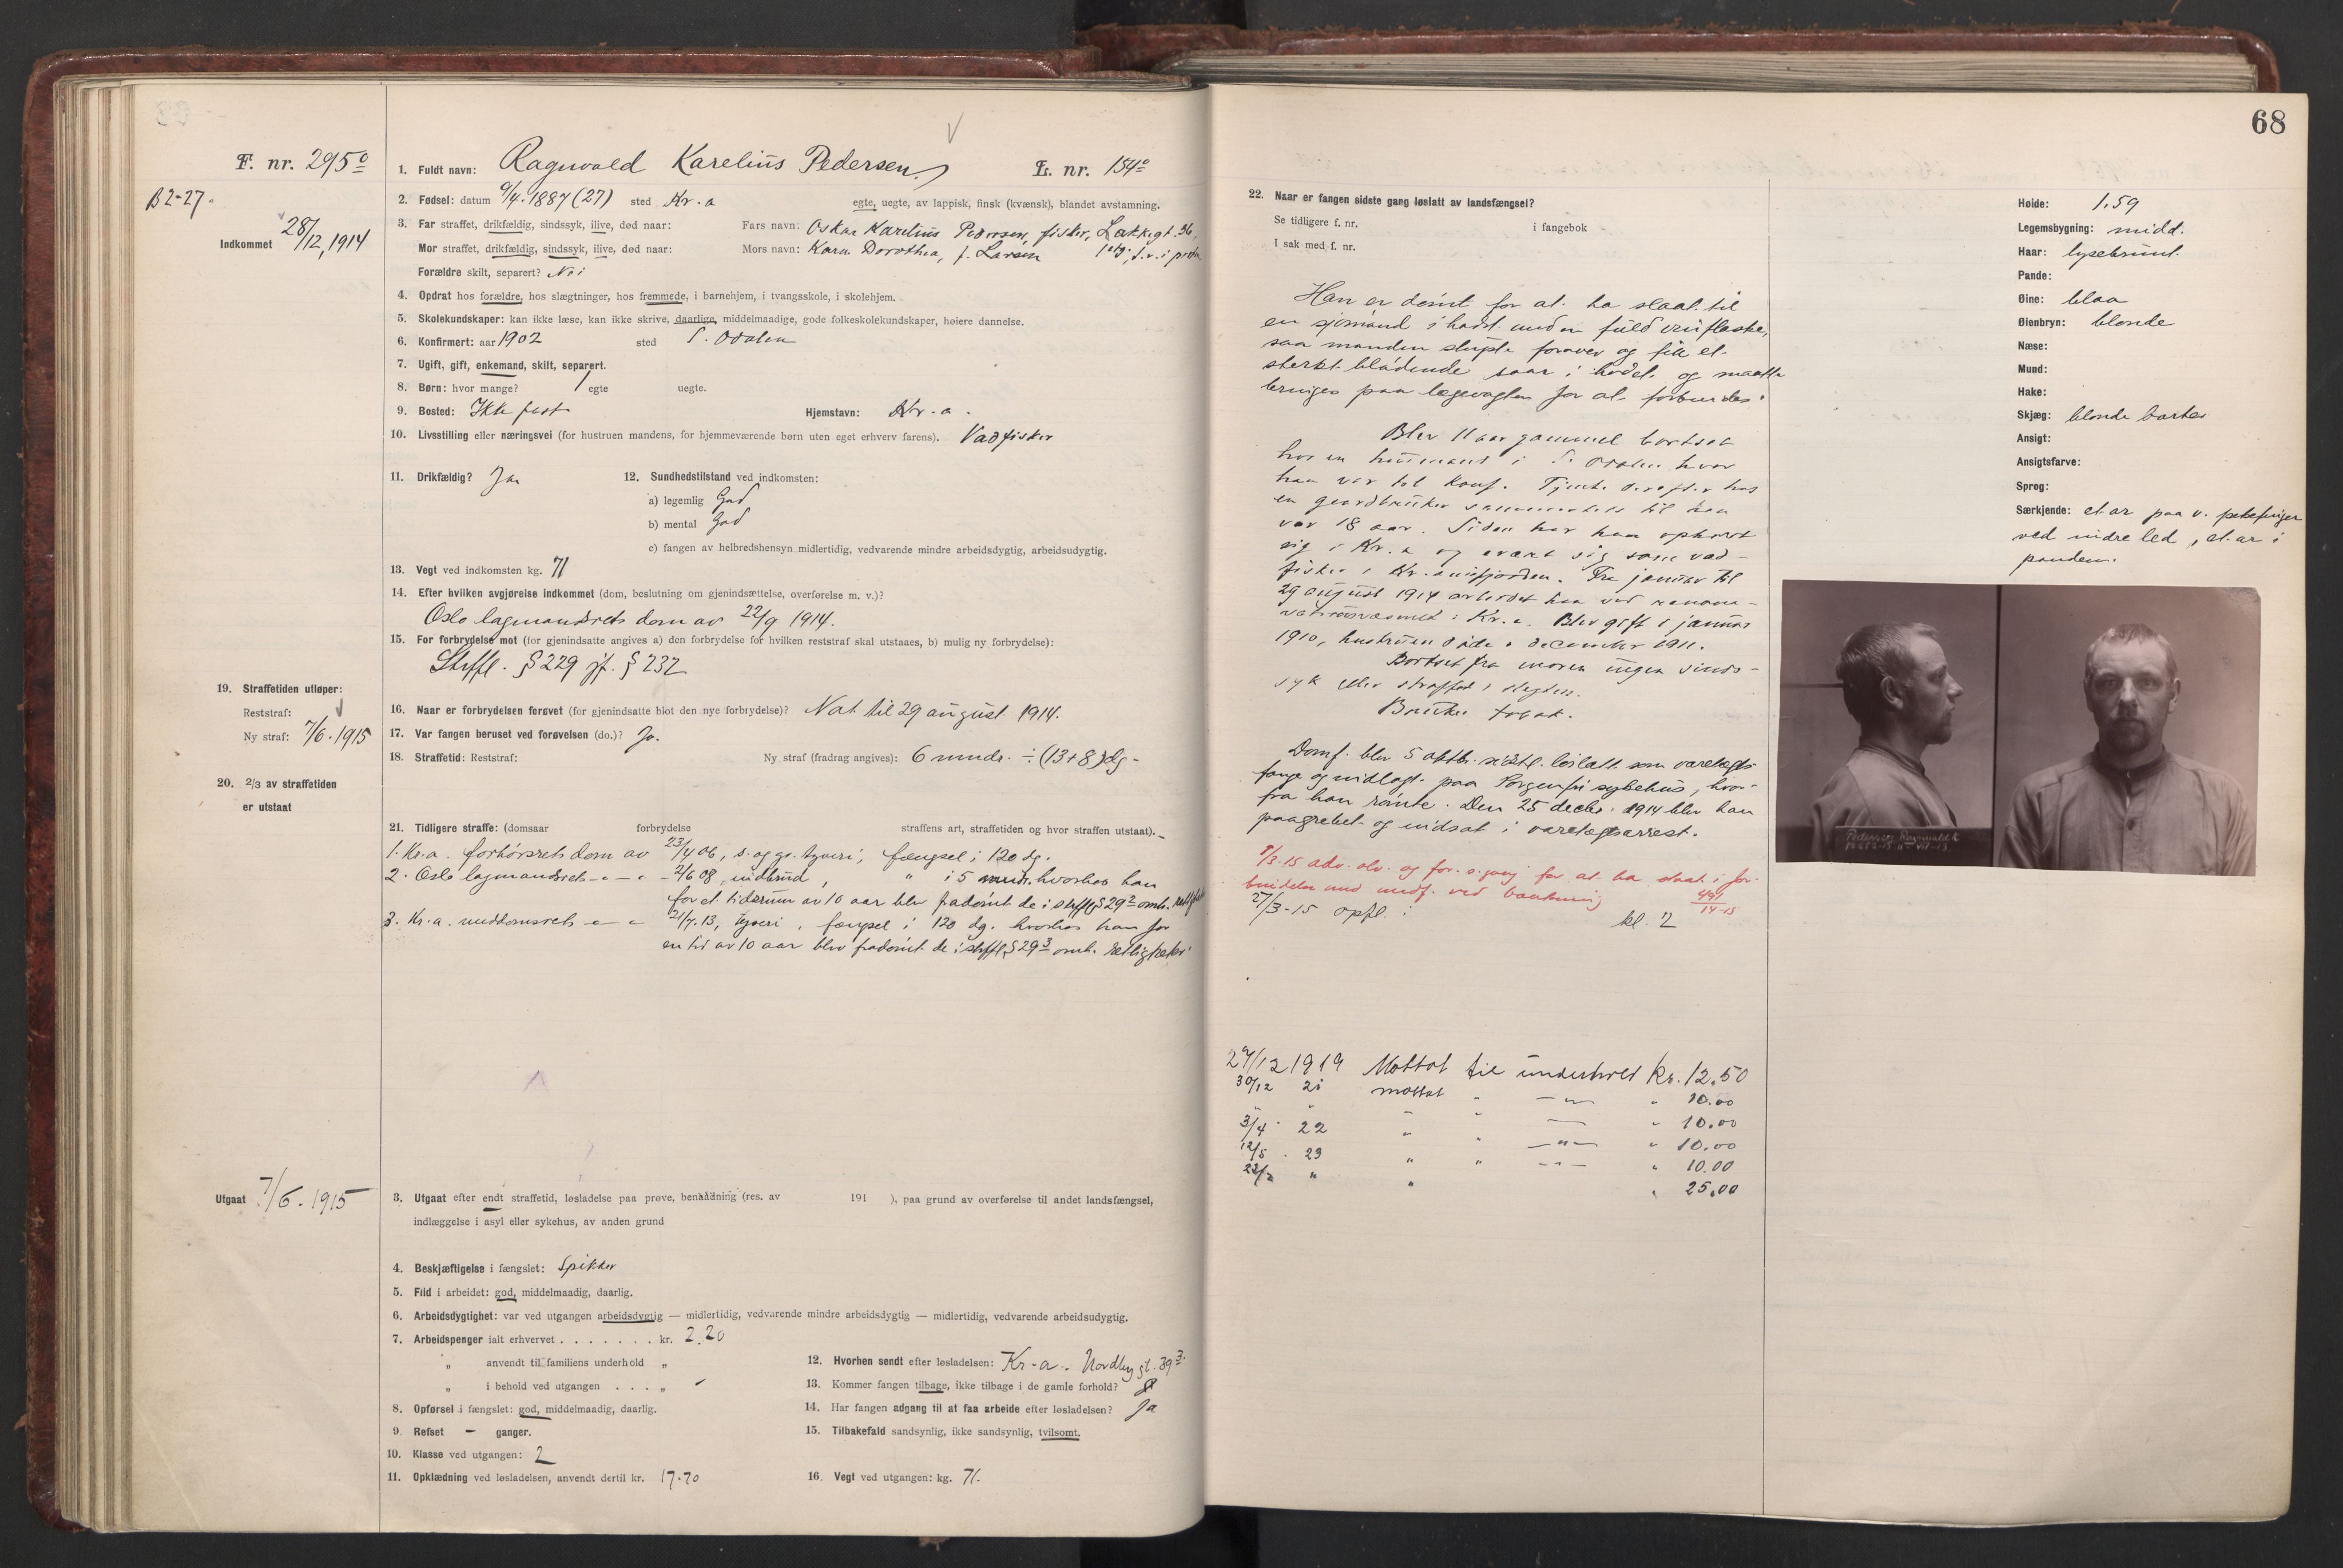 F. nr. 295º
B 2-27.
Indkommet 28/12, 1914
1. Fuldt navn: Ragnvald Karelius Pedersen. L. nr. 154º
2. Fødsel: datum 9/4. 1887 (27) sted Kr.a egte, uegte, av lappisk, finsk (kvænsk), blandet avstamning.
3. Far straffet, drikfældig, sindssyk, ilive, død naar: Fars navn: Oskar Karelius Pedersen, fisker, Lakkegt. 36,
Mor straffet, drikfældig, sindssyk, ilive, død naar: Mors navn: Kara Dorothea, f. Larsen
Forældre skilt, separert? Nei
4. Opdrat hos forældre, hos slægtninger, hos fremmede, i barnehjem, i tvangsskole, i skolehjem.
5. Skolekundskaper: kan ikke læse, kan ikke skrive, daarlige, middelmaadige, gode folkeskolekundskaper, høiere dannelse.
6. Konfirmert: aar 1902 sted S. Odalen
7. Ugift, gift, enkemand, skilt, separert.
8. Børn: hvor mange? 1 egte uegte.
9. Bosted: Ikke fast Hjemstavn: Kr.a.
10. Livsstilling eller næringsvei (for hustruen mandens, for hjemmeværende børn uten eget erhverv farens). Vadfisker
11. Drikfældig? Ja 12. Sundhedstilstand ved indkomsten:
a) legemlig God
b) mental God
c) fangen av helbredshensyn midlertidig, vedvarende mindre arbeidsdygtig, arbeidsudygtig.
13. Vegt ved indkomsten kg. 71
14. Efter hvilken avgjørelse indkommet (dom, beslutning om gjenindsættelse, overførelse m. v.)?
Oslo lagmandsrets dom av 22/9 1914.
15. For forbrydelse mot (for gjenindsatte angives a) den forbrydelse for hvilken reststraf skal utstaaes, b) mulig ny forbrydelse):
Strffl. § 229 jf. § 232
16. Naar er forbrydelsen forøvet (for gjenindsatte blot den nye forbrydelse)? Nat til 29 august 1914.
17. Var fangen beruset ved forøvelsen (do.)? Ja.
18. Straffetid: Reststraf: Ny straf (fradrag angives): 6 mndr. ÷ (13+8) dg.
19. Straffetiden utløper:
Reststraf:
Ny straf: 7/6. 1915
20. 2/3 av straffetiden
er utstaat
21. Tidligere straffe: (domsaar forbrydelse straffens art, straffetiden og hvor straffen utstaat).
1. Kr.a. forhørsrets dom av 23/4 06, s. og gr. tyveri, fængsel i 120 dg.
2. Oslo lagmandsrets - " - " - 2/6 08, indbrud, " i 5 mndr. hvorhos han
for et tidsrum av 10 aar blev fradømt de i strffl. § 29² omh.
3. Kr.a. meddomsrets - " - " 21/7. 13, tyveri, fængsel i 120 dg. hvorhos han for
en tid av 10 aar blev fradømt de i strffl. § 29³ omh. rettigheter.
Utgaat 7/6. 1915
3. Utgaat efter endt straffetid, løsladelse paa prøve, benaadning (res. av 191 ), paa grund av overførelse til andet landsfængsel,
indlæggelse i asyl eller sykehus, av anden grund
4. Beskjæftigelse i fængslet: Spikker
5. Flid i arbeidet: god, middelmaadig, daarlig.
6. Arbeidsdygtighet: var ved utgangen arbeidsdygtig — midlertidig, vedvarende mindre arbeidsdygtig — midlertidig, vedvarende arbeidsudygtig.
7. Arbeidspenger ialt erhvervet . . . . . . . kr. 2.20
„ anvendt til familiens underhold „ 12. Hvorhen sendt efter løsladelsen: Kr-a. Nordbygt. 39³
„ i behold ved utgangen . . . „ 13. Kommer fangen tilbage, ikke tilbage i de gamle forhold?
8. Opførsel i fængslet: god, middelmaadig, daarlig. 14. Har fangen adgang til at faa arbeide efter løsladelsen? Ja
9. Refset — ganger. 15. Tilbakefald sandsynlig, ikke sandsynlig, tvilsomt.
10. Klasse ved utgangen: 2
11. Opklædning ved løsladelsen, anvendt dertil kr. 17.70 16. Vegt ved utgangen: kg. 71.
68
22. Naar er fangen sidste gang løslatt av landsfængsel?
Se tidligere f. nr. i fangebok
I sak med f. nr.
Han er dømt for at ha slaat til
en sjømand i hodet med en fuld vinflaske,
saa manden stupte forover og fik et
sterkt blødende saar i hodet og maatte
bringes paa lægevagten for at forbindes.
Blev 11 aar gammel bortsat
hos en husmand i S. Odalen hvor
han var til konf. Tjente derefter hos
en gaardbruker sammesteds til han
var 18 aar. Siden har han opholdt
sig i Kr.a og ernært sig som vad-
fisker i Kr.aniafjorden. Fra januar til
29 august 1914 arbeidet han ved renova-
tionsvæsenet i Kr.a. Blev gift i januar
1910, hustruen døde i december 1911.
Bortset fra moren ingen sinds-
syk eller straffet i slegten.
Bruker tobak.
Domf. blev 5 oktbr. sidstl. løslatt som varetægts-
fange og indlagt paa Sorgenfri sykehus, hvor-
fra han rømte. Den 25 decbr. 1914 blev han
paagrebet og indsat i varetægtsarrest.
1/3-15 adv. alv. og for. s. gang for at ha staat i for-
bindelse med medf. ved bankning 491/14-15
27/3-15 opfl. i kl. 2
24/12 1919 Mottat til underhold Kr. 12.50
30/12 21 mottat " — " — " 10.00
3/4 22 " " — " 10.00
12/5 . 23 " " — " — " 10.00
" " — " — " 10.00
" " " 25.00
Høide: 1.59
Legemsbygning: midd.
Haar: lysebrunt.
Pande:
Øine: blaa
Øienbryn: blonde
Næse:
Mund:
Hake:
Skjæg: blonde barter
Ansigt:
Ansigtsfarve:
Sprog:
Særkjende: et ar paa v. pekefinger
ved indre led, et ar i
panden.
Pedersen Ragnvald K